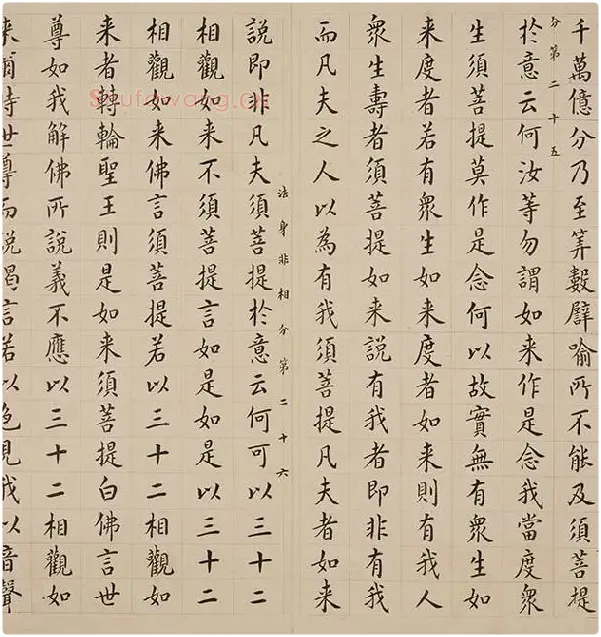 千萬億分乃至筭數譬喻所不能及須菩提
分第二十五
於意云何汝等勿謂如来作是念我當度衆
生須菩提莫作是念何以故實無有衆生如
来度者若有衆生如来度者如来則有我人
衆生壽者須菩提如来說有我者即非有我
而凡夫之人以為有我須菩提凡夫者如来
法身非相分第二十六
說即非凡夫須菩提於意云何可以三十二
相觀如来不須菩提言如是如是以三十二
相觀如来佛言須菩提若以三十二相觀如
来者轉輪聖王則是如来須菩提白佛言世
尊如我解佛所說義不應以三十二相觀如
来爾時世尊而說偈言若以色見我以音聲
Shufawang.cn